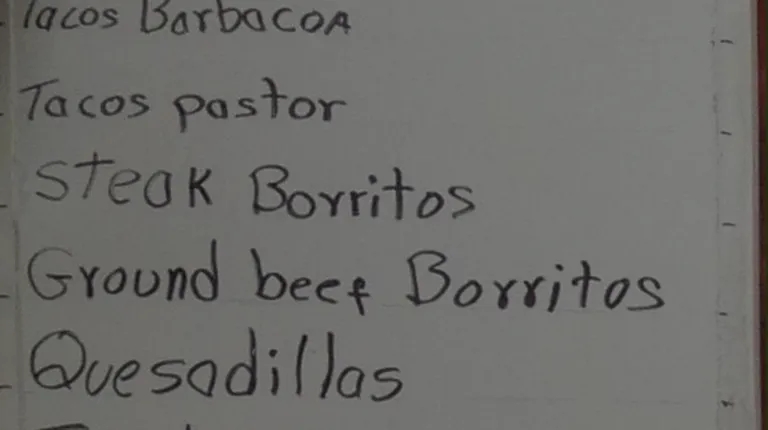 Tacos BarbacoA
Tacos pastor
Steak Borritos
Ground beef Borritos
Quesadillas